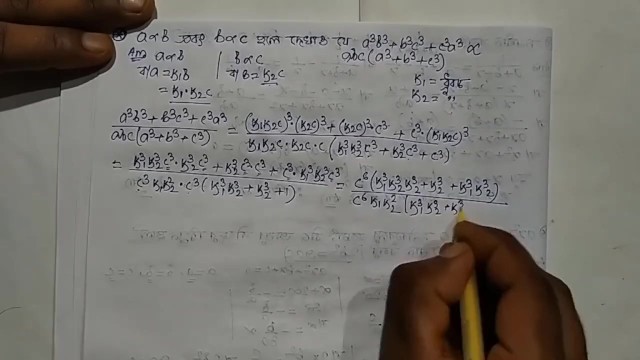 a∝b এবং b∝c হলে দেখাও যে a³b³+b³c³+c³a³ ∝
abc(a³+b³+c³)
Ans a∝b | b∝c
বা a = K₁b | বা b = K₂c
= K₁·K₂c
K₁ = ধ্রুবক
K₂ = "
a³b³+b³c³+c³a³ / abc(a³+b³+c³) = (K₁K₂c)³·(K₂c)³+(K₂c)³·c³+c³·(K₁K₂c)³ / K₁K₂c·K₂c·c(K₁³K₂³c³+K₂³c³+c³)
= K₁³K₂³c³·K₂³c³+K₂³c³c³+c³·K₁³K₂³c³ / c³K₁K₂²·c³(K₁³K₂³+K₂³+1) = c⁶(K₁³K₂³K₂³+K₂³+K₁³K₂³) / c⁶K₁K₂²(K₁³K₂³+K₂³